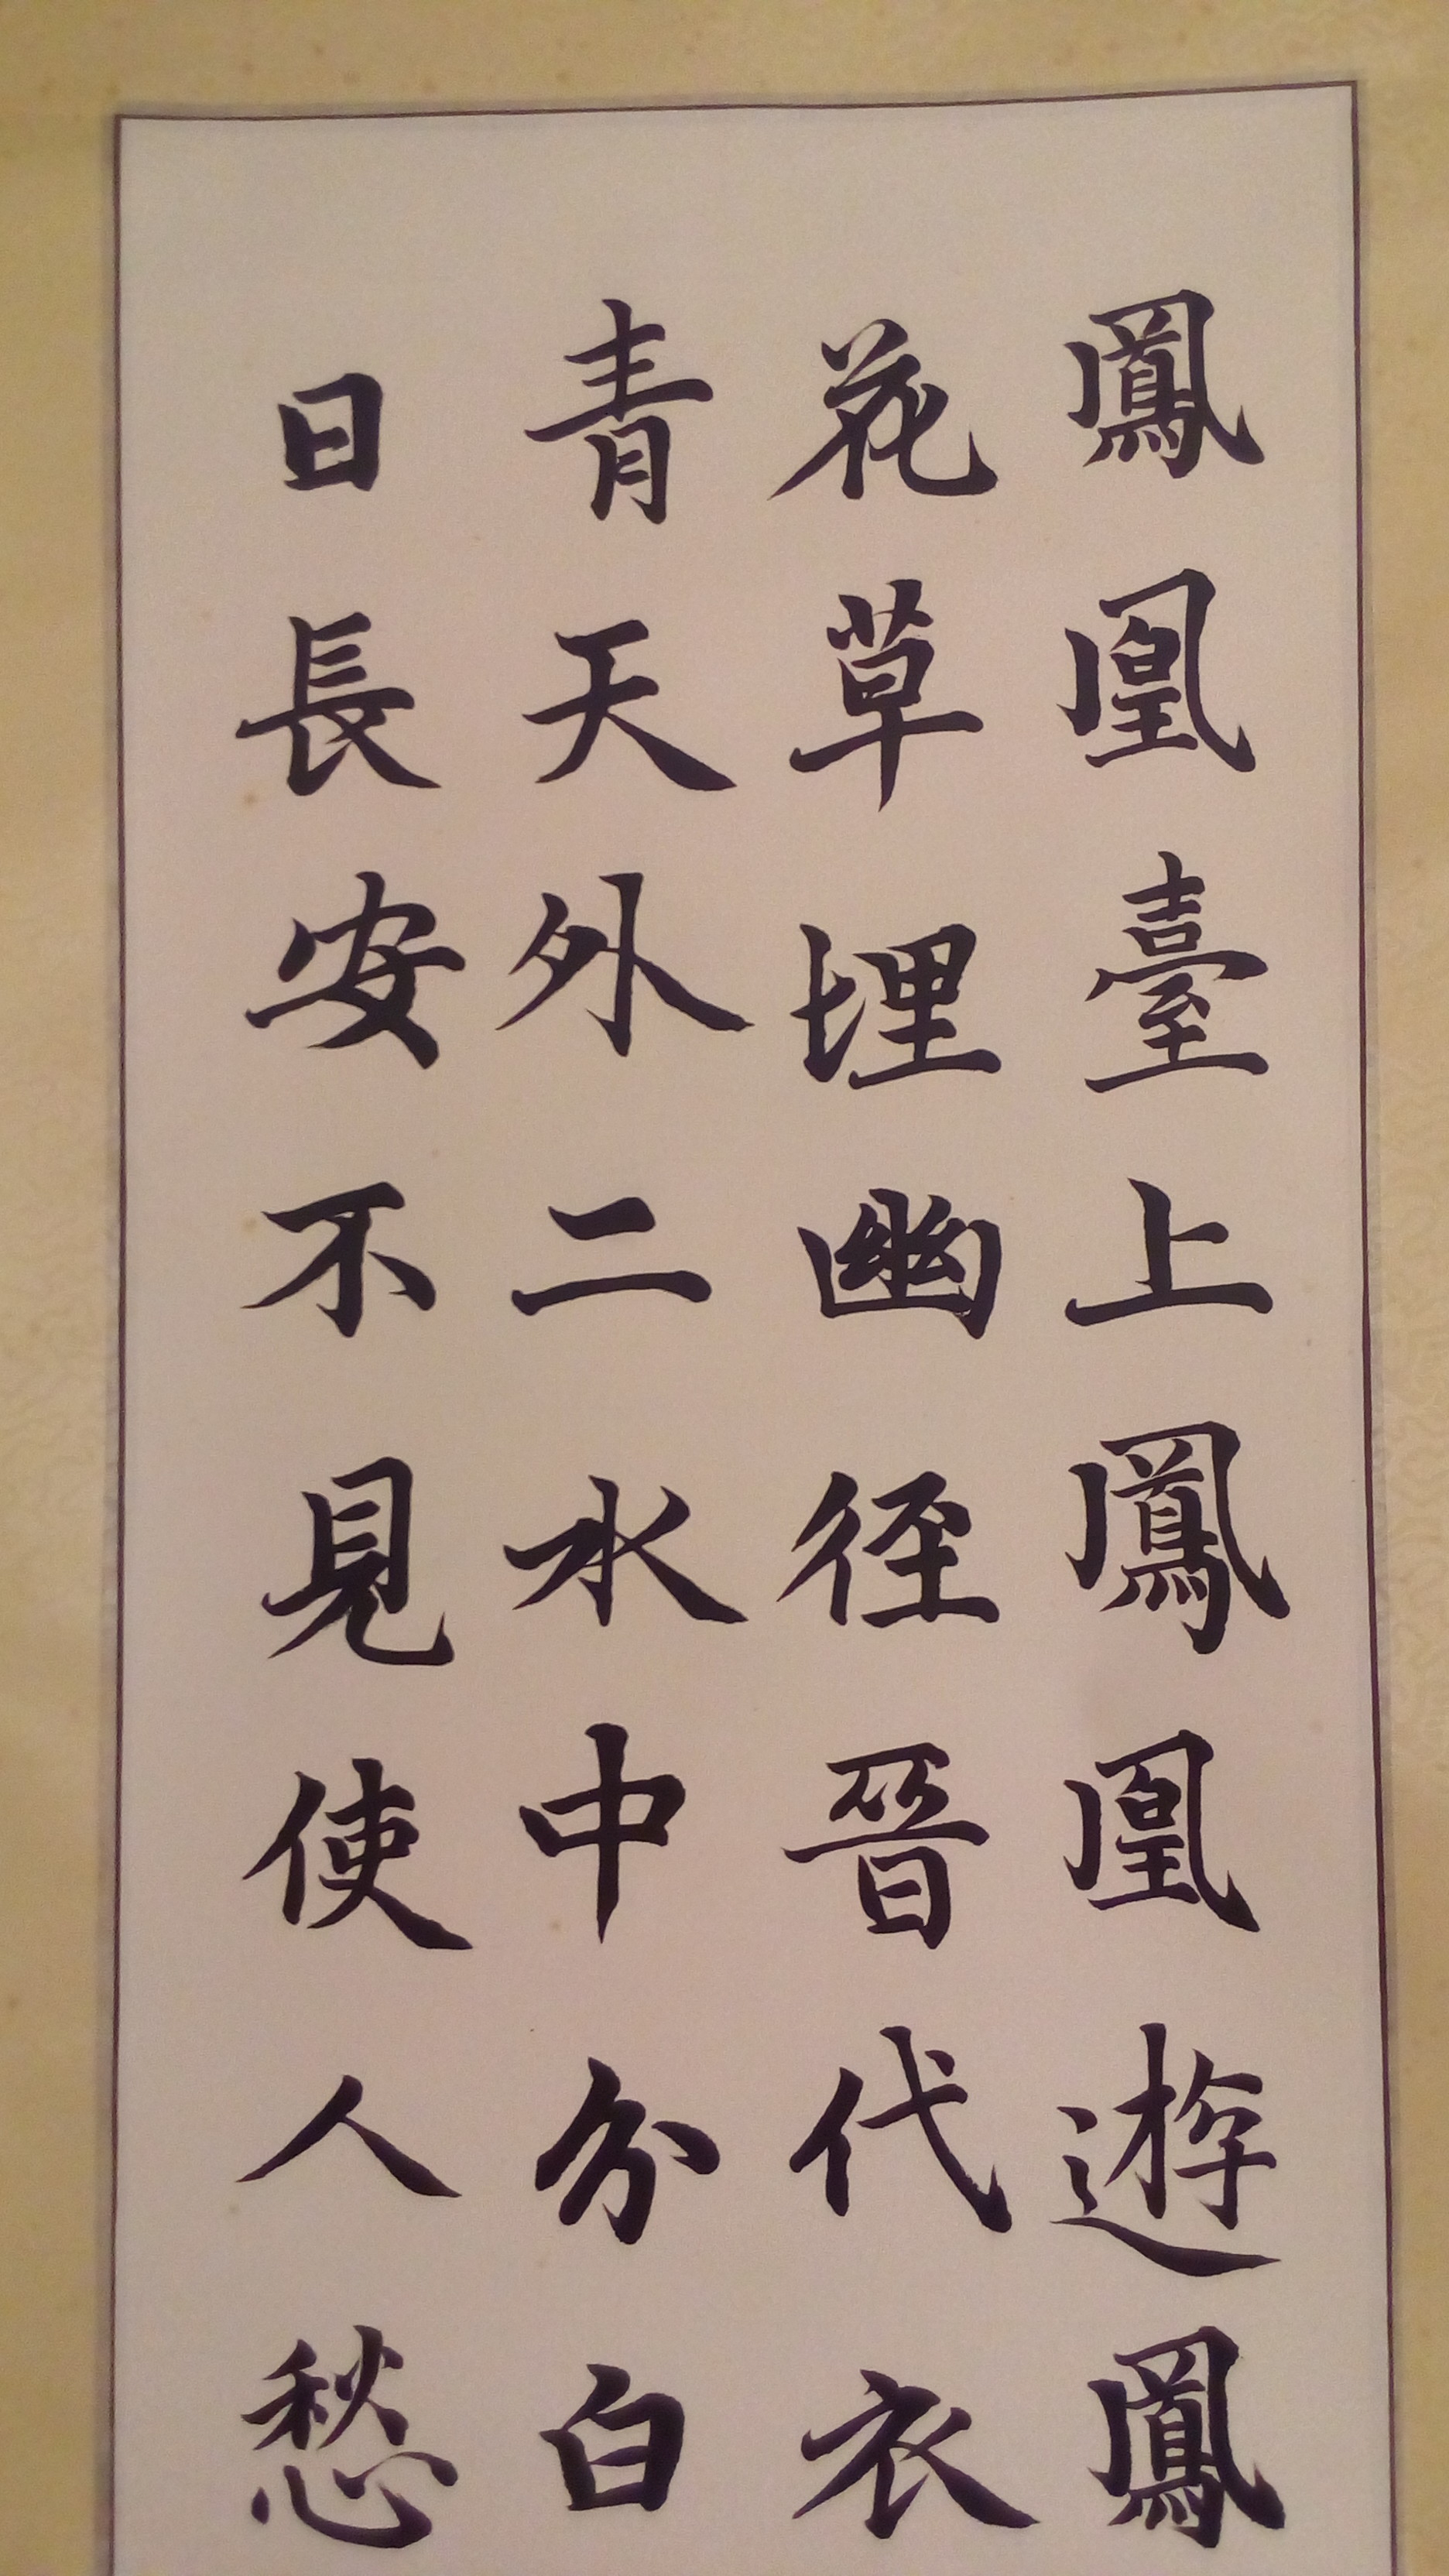 鳳凰臺上鳳凰遊鳳
花草埋幽徑晉代衣
青天外二水中分白
日長安不見使人愁